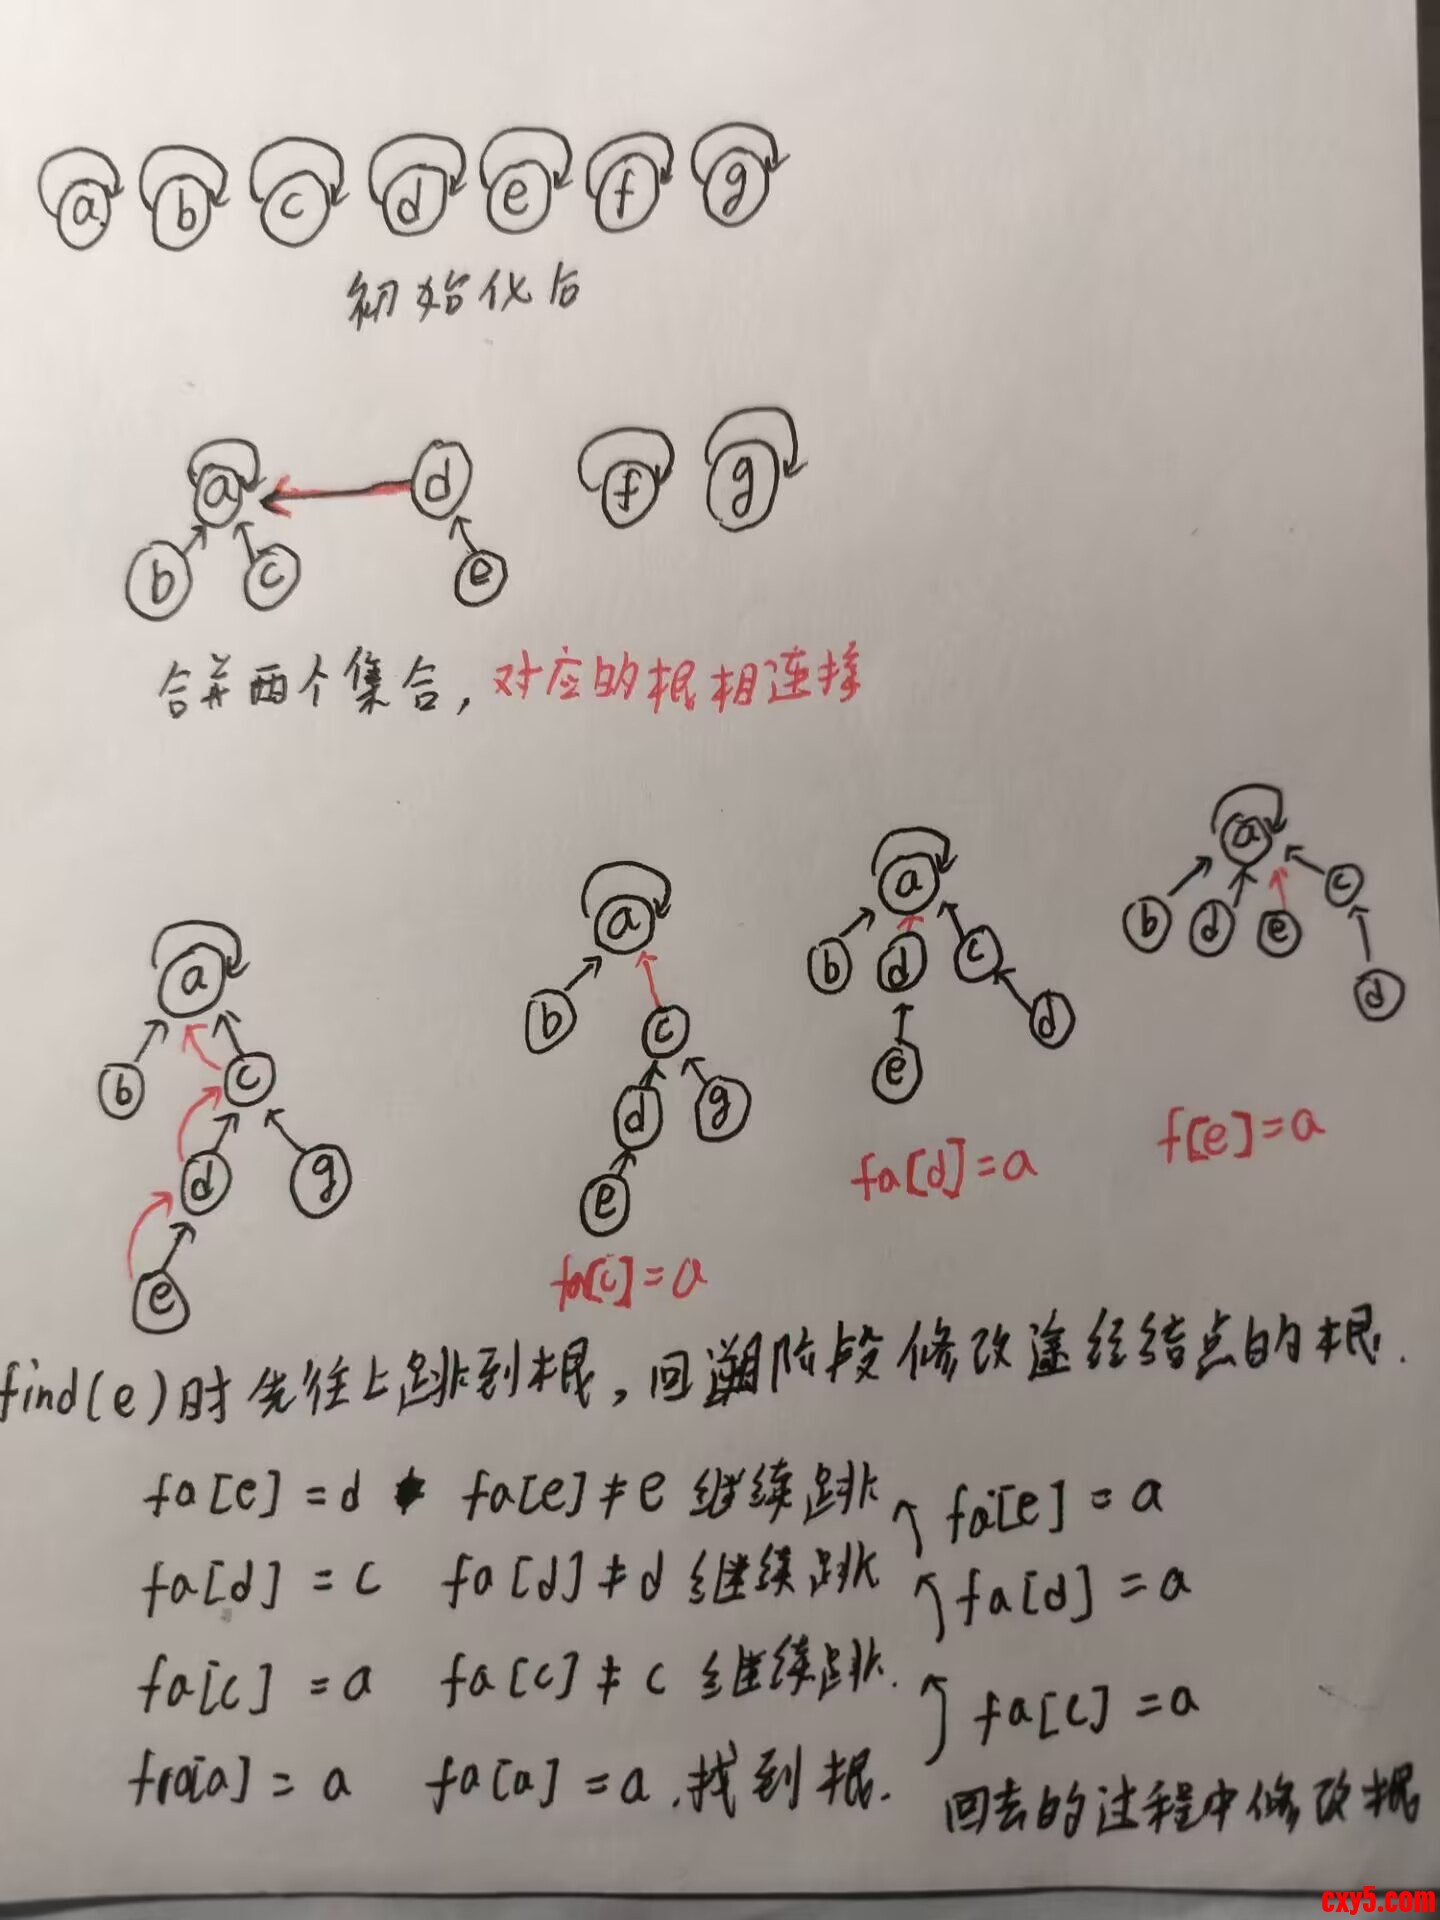 a b c d e f g
初始化后
a d f g
b c e
合并两个集合，对应的根相连接
a
b c
d g
e
a
b c
d g
e
fa[c]=a
a
b d c
e d
fa[d]=a
a
b d e c
d
f[e]=a
find(e)时先往上跳到根，回溯阶段修改途经结点的根.
fa[e]=d fa[e]≠e 继续跳 fa[e]=a
fa[d]=c fa[d]≠d 继续跳 fa[d]=a
fa[c]=a fa[c]≠c 继续跳. fa[c]=a
fa[a]=a fa[a]=a.找到根. 回去的过程中修改根
cxy5.com